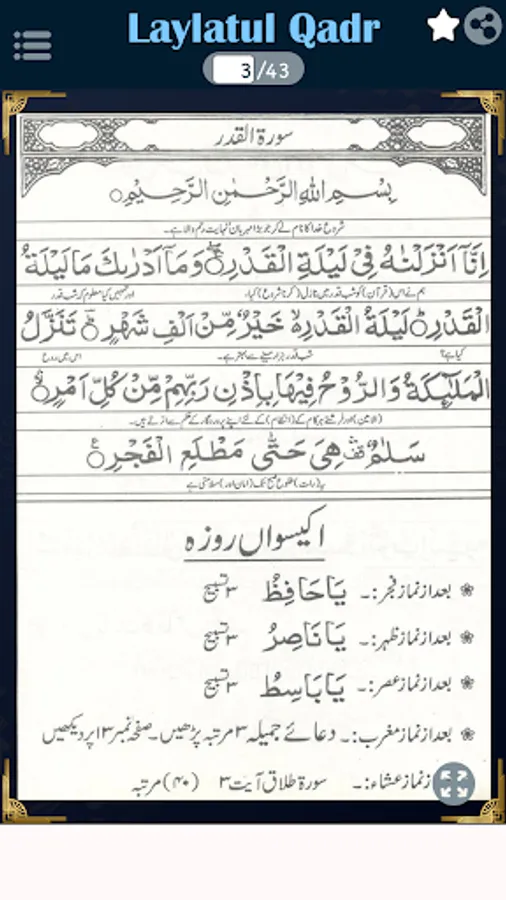 Laylatul Qadr
3/43
سورة القدر
بِسْمِ اللهِ الرَّحْمٰنِ الرَّحِيْمِ
شروع خدا کا نام لے کر جو بڑا مہربان نہایت رحم والا ہے۔
اِنَّآ اَنْزَلْنٰهُ فِيْ لَيْلَةِ الْقَدْرِ وَمَآ اَدْرٰىكَ مَا لَيْلَةُ
ہم نے اس (قرآن) کو شب قدر میں نازل (کرنا شروع) کیا، اور تمہیں کیا معلوم کہ شب قدر
الْقَدْرِ لَيْلَةُ الْقَدْرِ خَيْرٌ مِّنْ اَلْفِ شَهْرٍ تَنَزَّلُ
کیا ہے؟ شب قدر ہزار مہینے سے بہتر ہے۔ اس میں روح
الْمَلٰٓئِكَةُ وَالرُّوْحُ فِيْهَا بِاِذْنِ رَبِّهِمْ مِّنْ كُلِّ اَمْرٍ
(الامین) اور فرشتے ہر کام کے (انتظام) کے لئے اپنے پروردگار کے حکم سے اترتے ہیں۔
سَلٰمٌ هِيَ حَتّٰى مَطْلَعِ الْفَجْرِ
یہ (رات) طلوع صبح تک (امان اور) سلامتی ہے
اکیسواں روزہ
بعد از نماز فجر:۔ یَا حَافِظُ ۳ تسبیح
بعد از نماز ظہر:۔ یَا نَاصِرُ ۳ تسبیح
بعد از نماز عصر:۔ یَا بَاسِطُ ۳ تسبیح
بعد از نماز مغرب:۔ دعائے جمیلہ ۳ مرتبہ پڑھیں۔ صفحہ نمبر ۱۳ پر دیکھیں
ز نماز عشاء:۔ سورۃ طلاق آیت ۳ (۴۰) مرتبہ